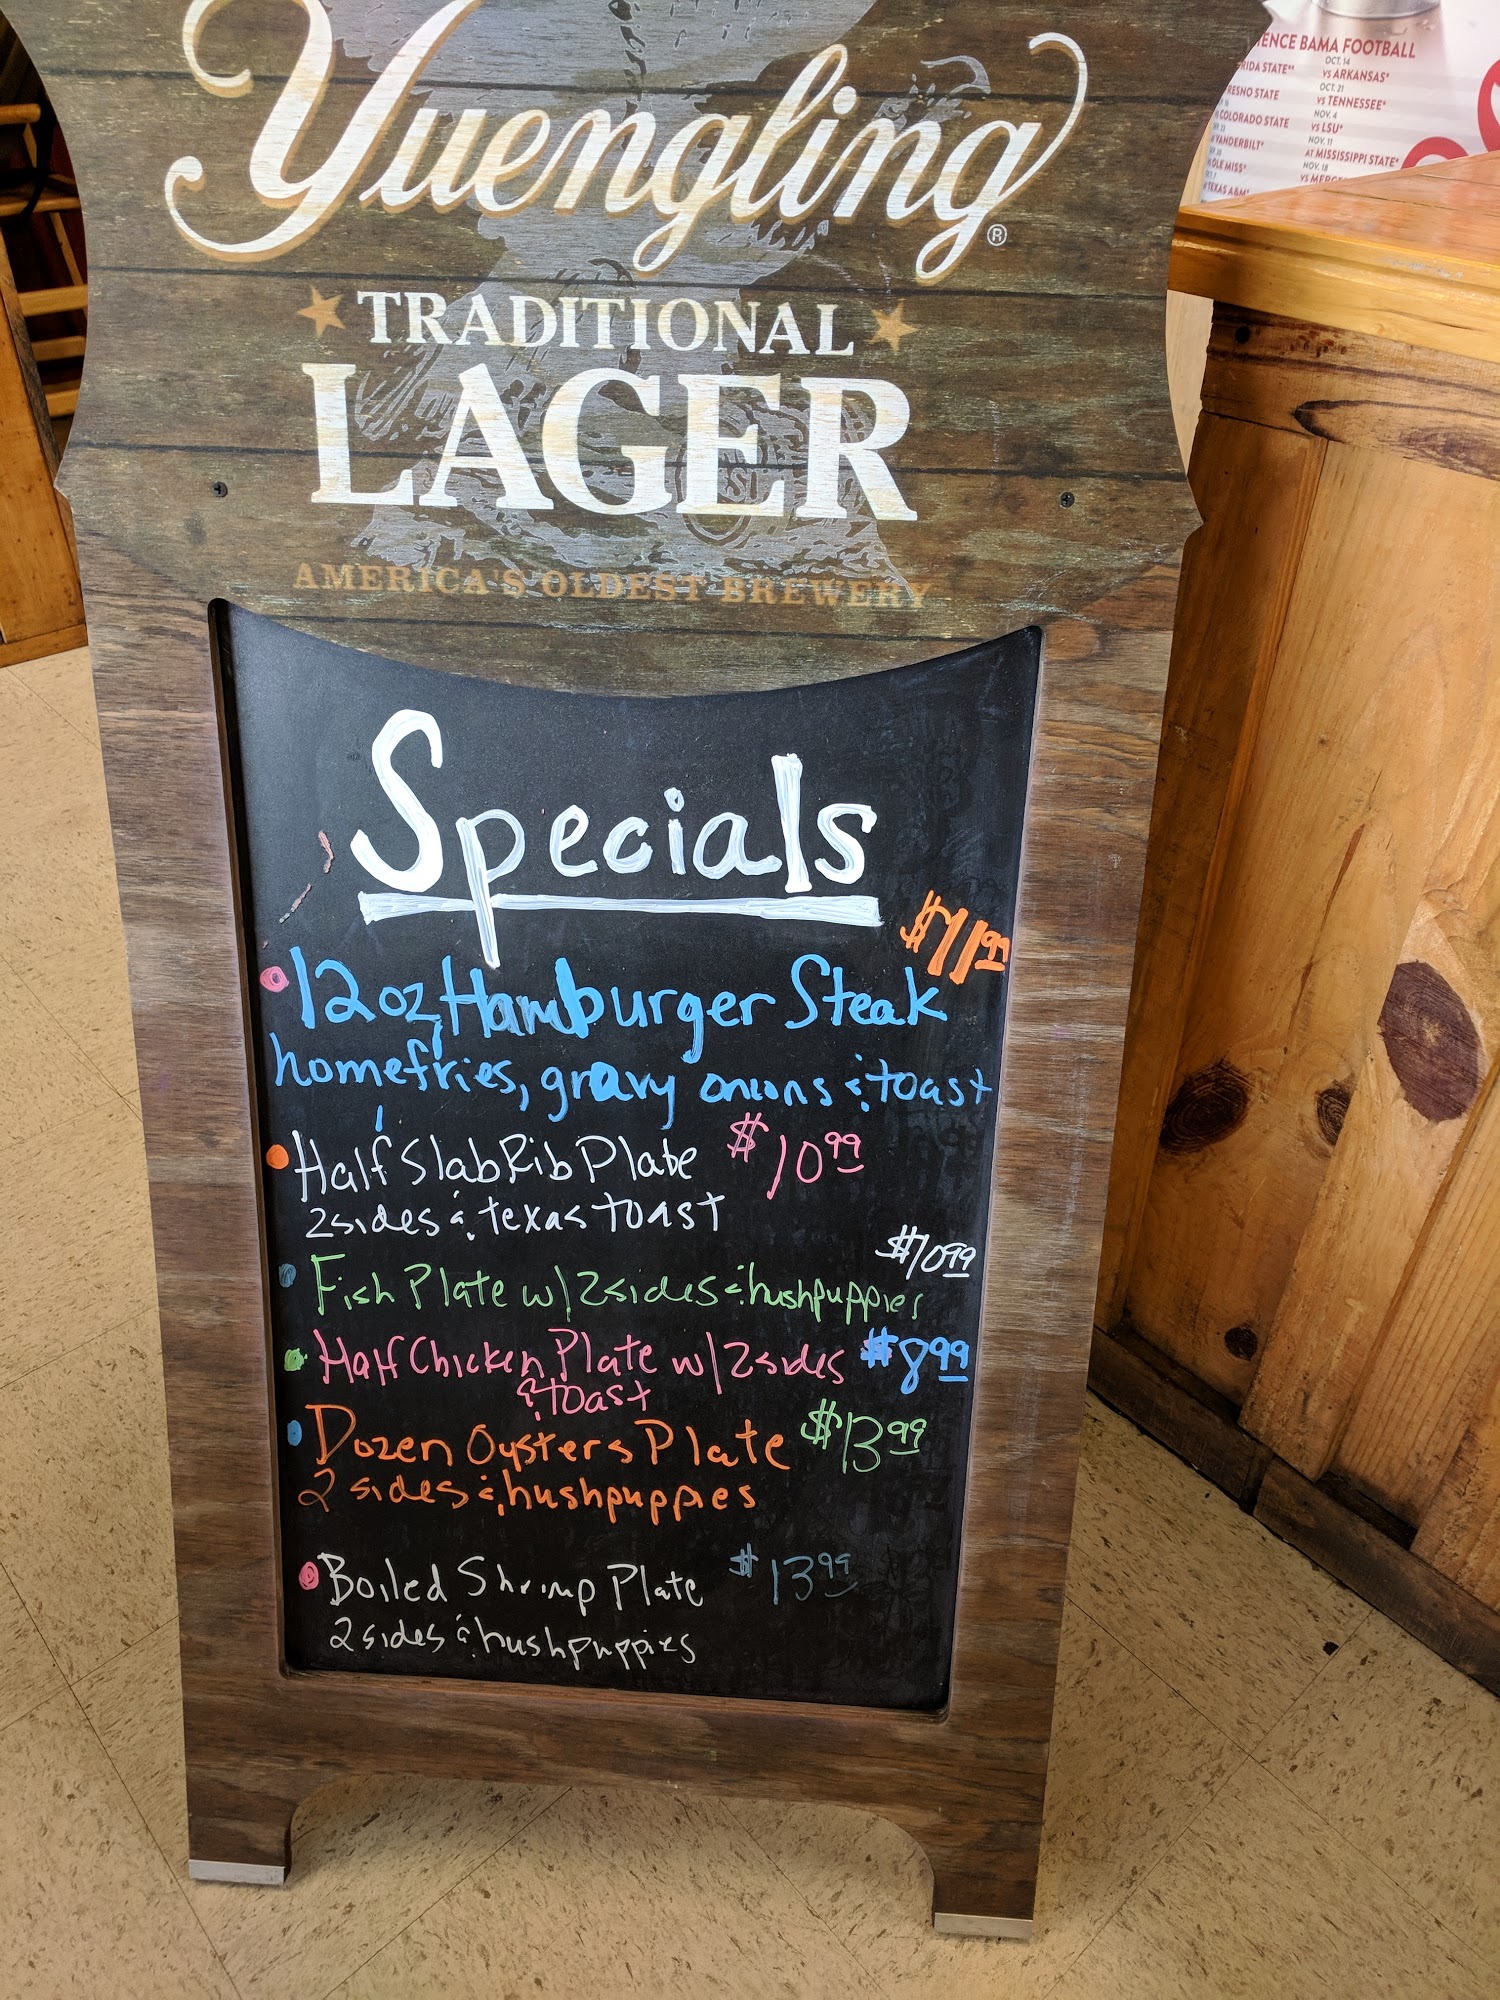 Yuengling®
TRADITIONAL
LAGER
AMERICA'S OLDEST BREWERY
Specials
$11.99
12oz Hamburger Steak
homefries, gravy onions & toast
Half Slab Rib Plate $10.99
2 sides & texas toast
$10.99
Fish Plate w/ 2 sides & hushpuppies
Half Chicken Plate w/ 2 sides $8.99
& toast
Dozen Oysters Plate $13.99
2 sides & hushpuppies
Boiled Shrimp Plate $13.99
2 sides & hushpuppies
BAMA FOOTBALL
OCT. 14
VS ARKANSAS*
OCT. 21
VS TENNESSEE*
NOV. 4
VS LSU*
NOV. 11
AT MISSISSIPPI STATE*
NOV. 18
STATE**
STATE
COLORADO STATE
VANDERBILT*
OLE MISS*
TEXAS A&M*